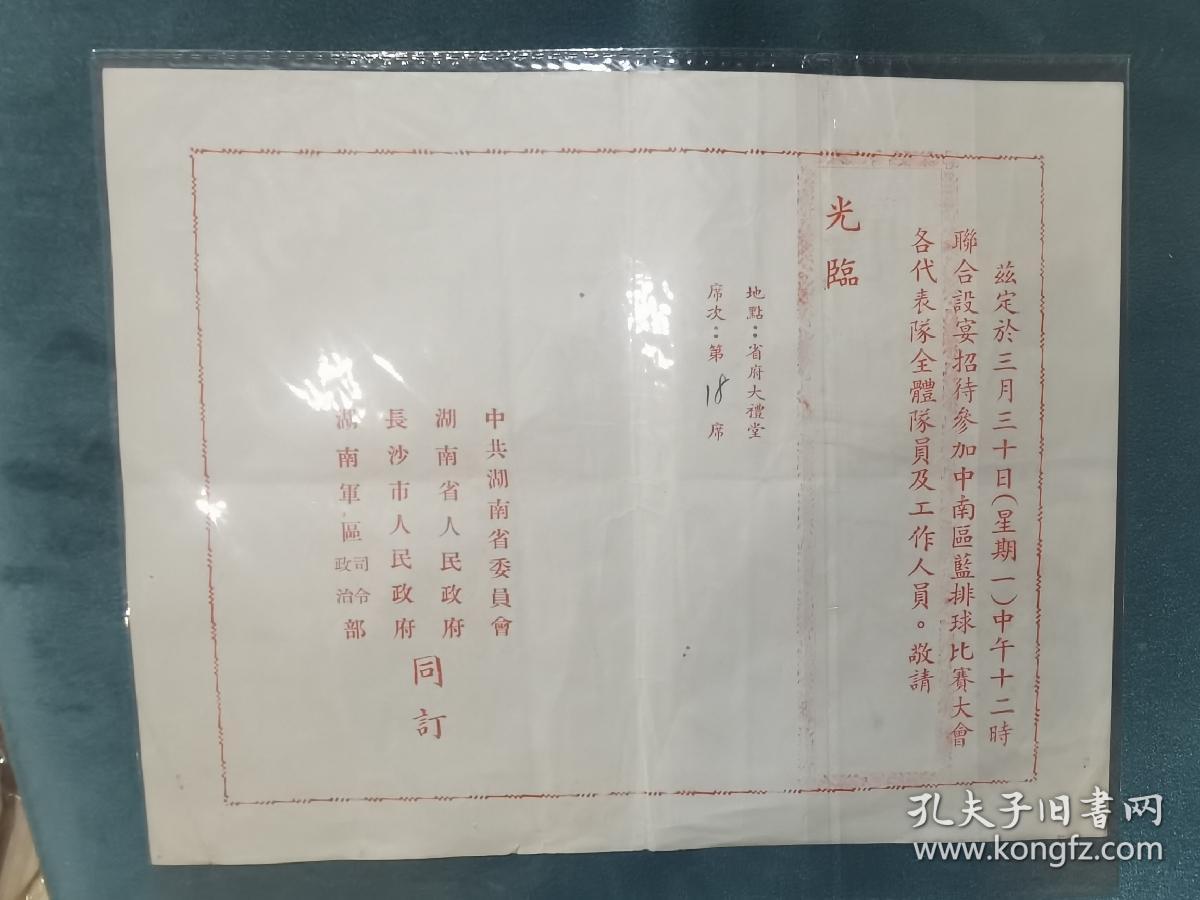 茲定於三月三十日(星期一)中午十二時
聯合設宴招待參加中南區藍排球比賽大會
各代表隊全體隊員及工作人員。敬請
光臨
地點：省府大禮堂
席次：第18席
中共湖南省委員會
湖南省人民政府
長沙市人民政府
湖南軍區司令政治部
同訂
孔夫子旧书网
www.kongfz.com